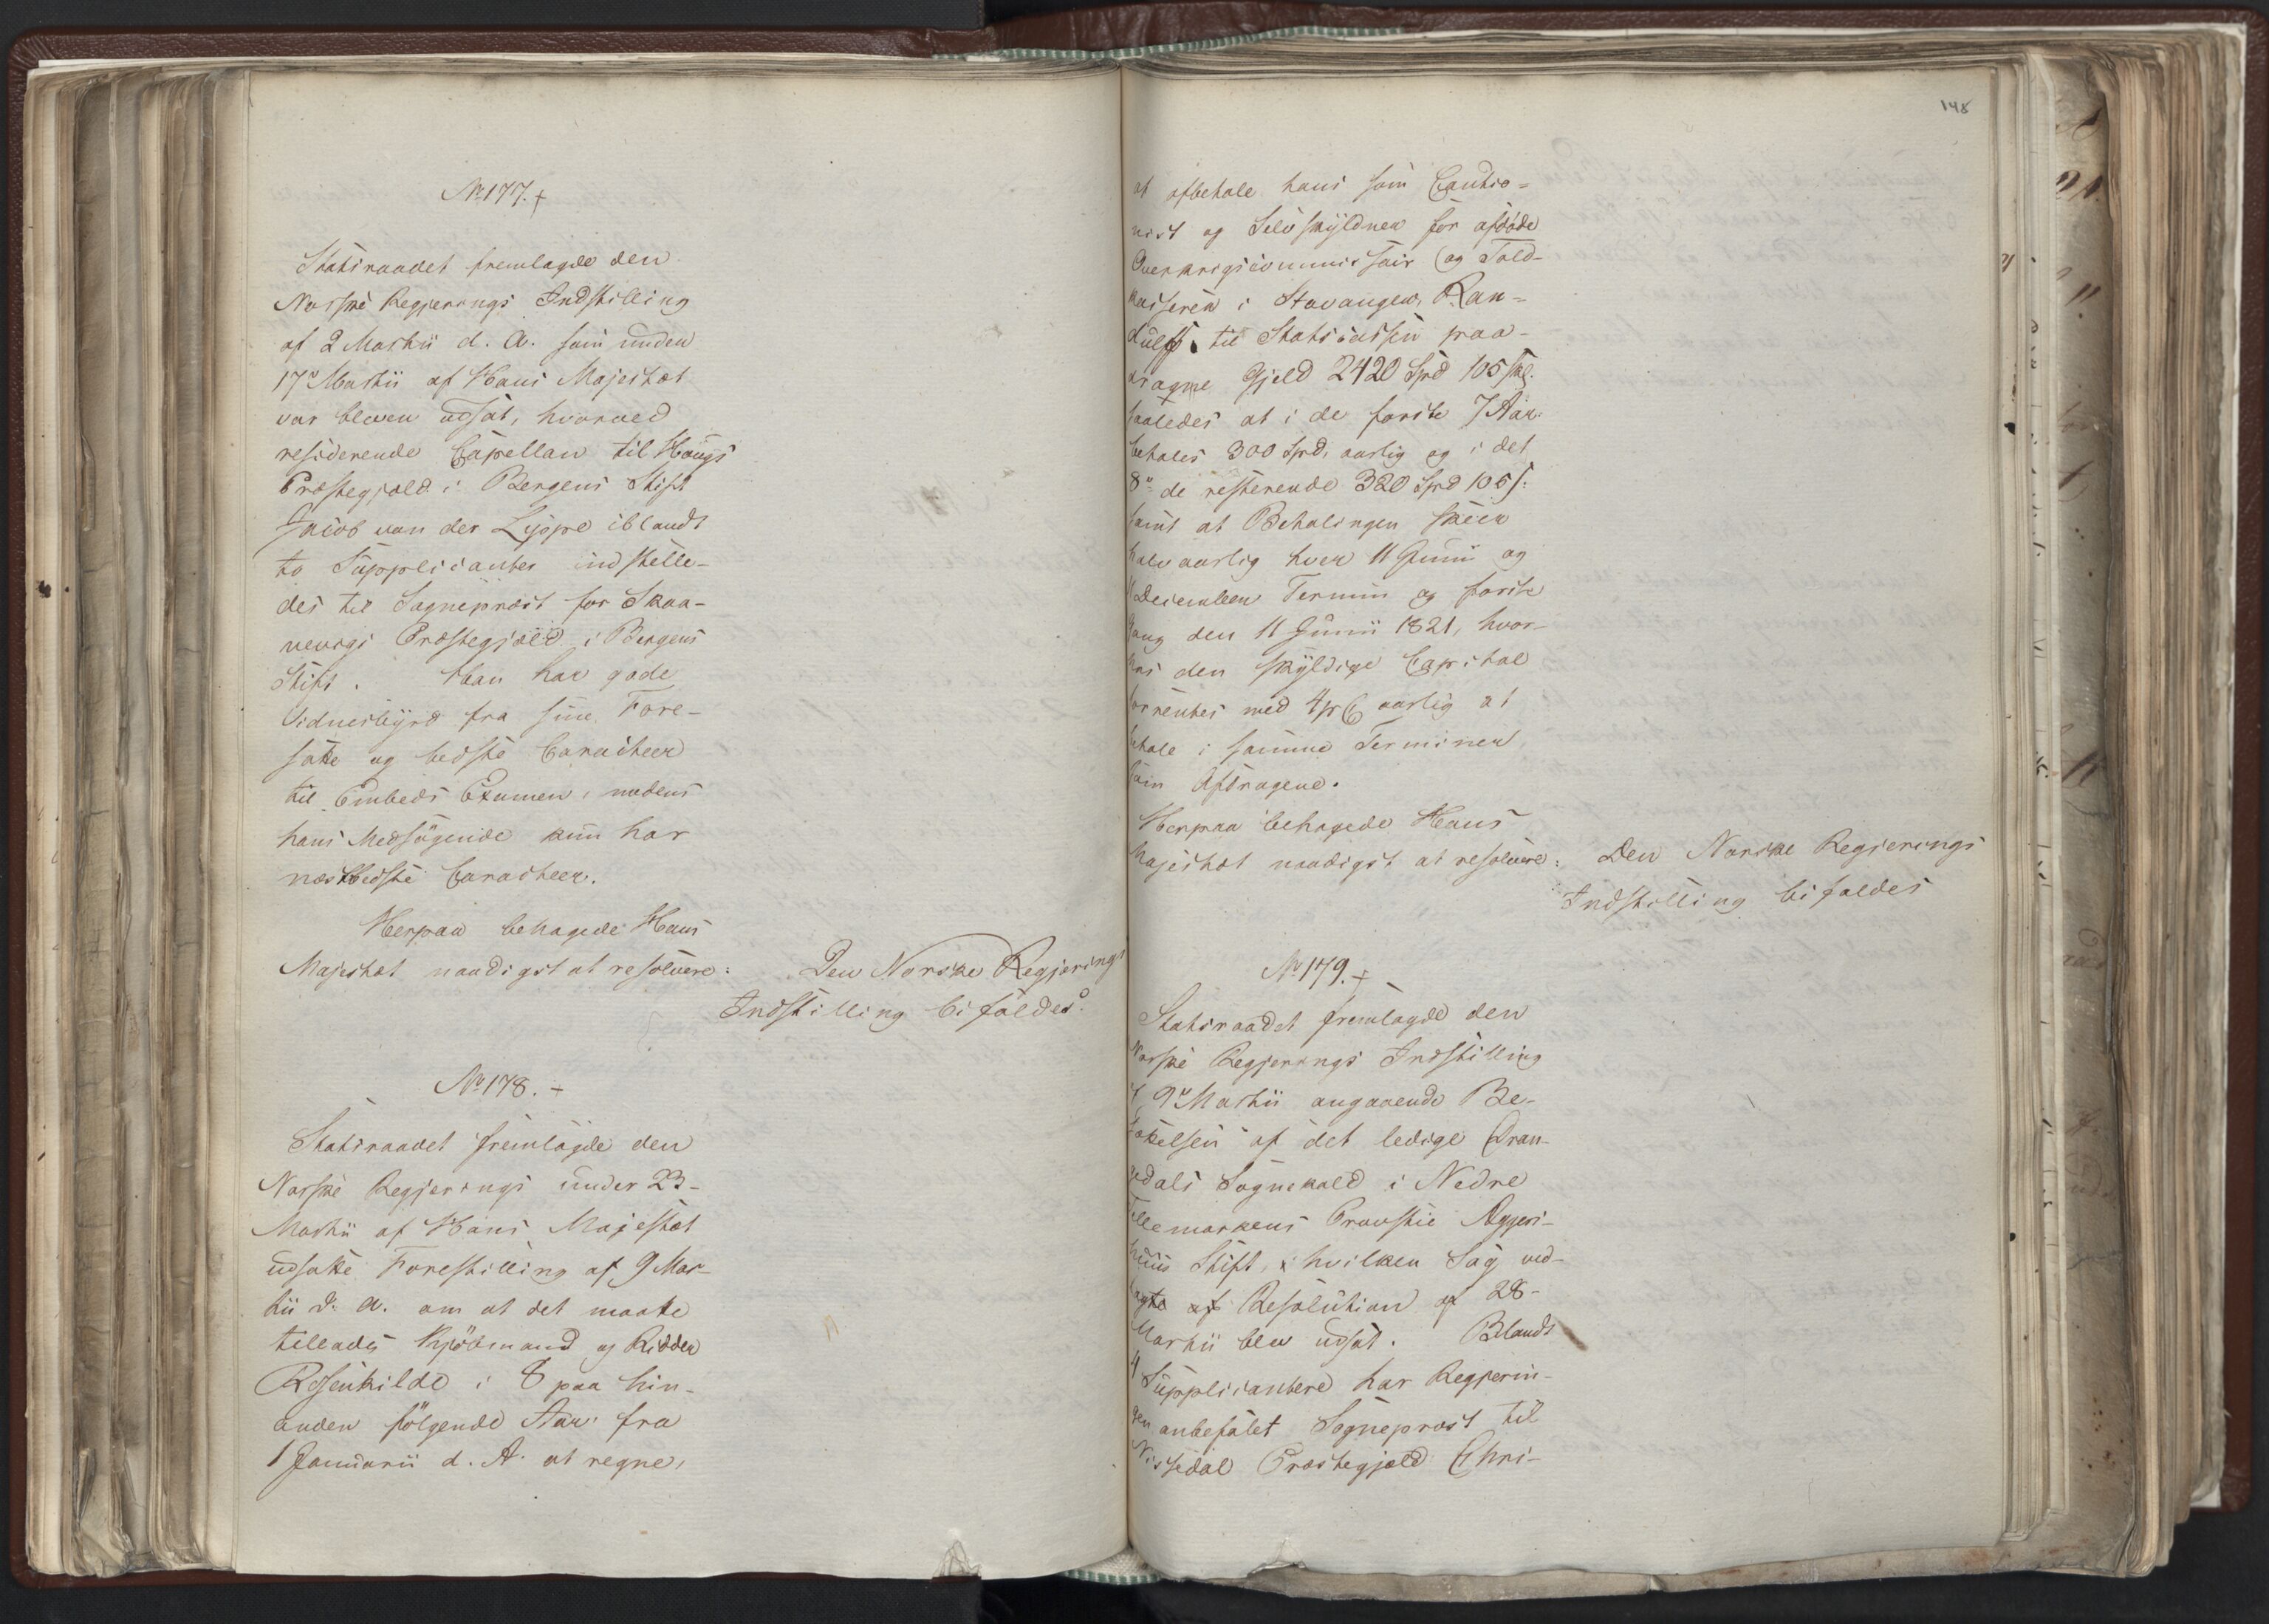 No 177. +
Statsraadet fremlagde den
Norske Regjerings Indstilling
af 2 Martii d. A. som under
17de Martii af Hans Majestæt
var bleven udsat, hvorved
residerende Capellan til Hougs
Præstegjæld i Bergens Stift
Jacob von der Lippe iblandt
to Supplicanter indstille-
des til Sognepræst for Skaa-
nevigs Præstegjæld i Bergens
Stift. Han har gode
Vidnesbyrd fra sine Fore-
satte og bedste Caracteer
til Embeds Examen, medens
hans Medsøgende kun har
næstbedste Caracteer.
Herpaa behagede Hans
Majestæt naadigst at resolvere:
Den Norske Regjerings
Indstilling bifaldes.
No 178. +
Statsraadet fremlagde den
Norske Regjerings under 23-
Martii af Hans Majestæt
udsatte Forestilling af 9 Mar-
tii d. A. om at det maatte
tillades Kjøbmand og Ridder
Rosenkilde i 8 paa hin-
anden følgende Aar fra
1 Januarii d. A. at regne,
148
at afbetale hans som Cautio-
nist og Selvskyldner for afdøde
Overkrigscommissair og Told-
kasserer i Stavanger, Ran-
dulff, til Statscassen paa-
dragne Gjeld 2420 Spd 105 skl.
saaledes at i de første 7 Aar
betales 300 Spd. aarlig og i det
8de de resterende 320 Spd 105 s.
samt at Betalingen skeer
halvaarlig hver 11 Junii og
11 December Termin og første
Gang den 11 Junii 1821, hvor-
hos den skyldige Capital
forrentes med 4 pC aarlig at
betale i samme Terminer
som Afdragene.
Herpaa behagede Hans
Majestæt naadigst at resolvere:
Den Norske Regjerings
Indstilling bifaldes
No 179. +
Statsraadet fremlagde den
Norske Regjerings Indstilling
af 9de Martii angaaende Be-
sættelsen af det ledige Dran-
gedals Sognekald i Nedre
Tellemarkens Provstie Aggers-
huus Stift, i hvilken Sag ved-
tagte af Resolution af 28-
Martii blev udsat. Blandt
4 Supplicantere har Regjerin-
gen anbefalet Sognepræst til
Nissedal Præstegjæld Chri-